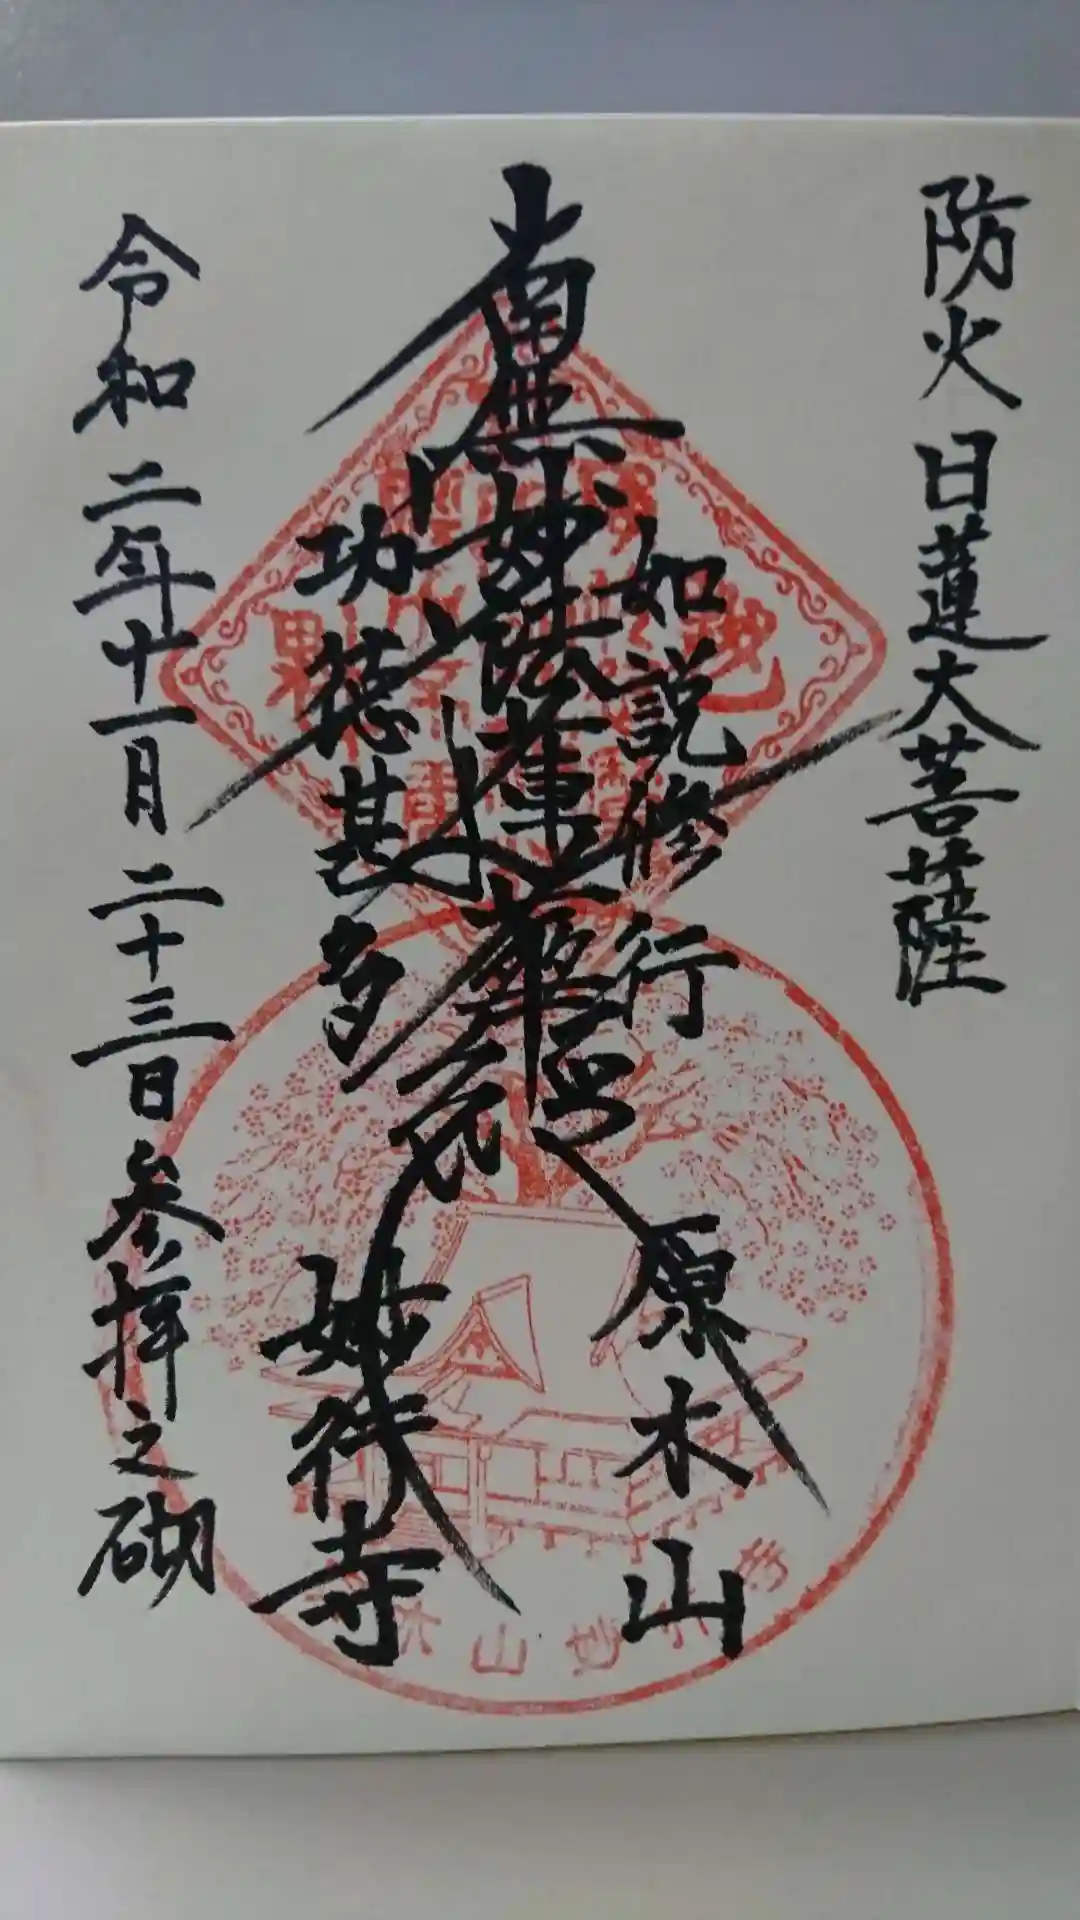 防火日蓮大菩薩
如説修行
原木山
南無妙法蓮華経
功徳甚多
妙行寺
令和二年十一月二十三日参拝之砌
木山妙行寺